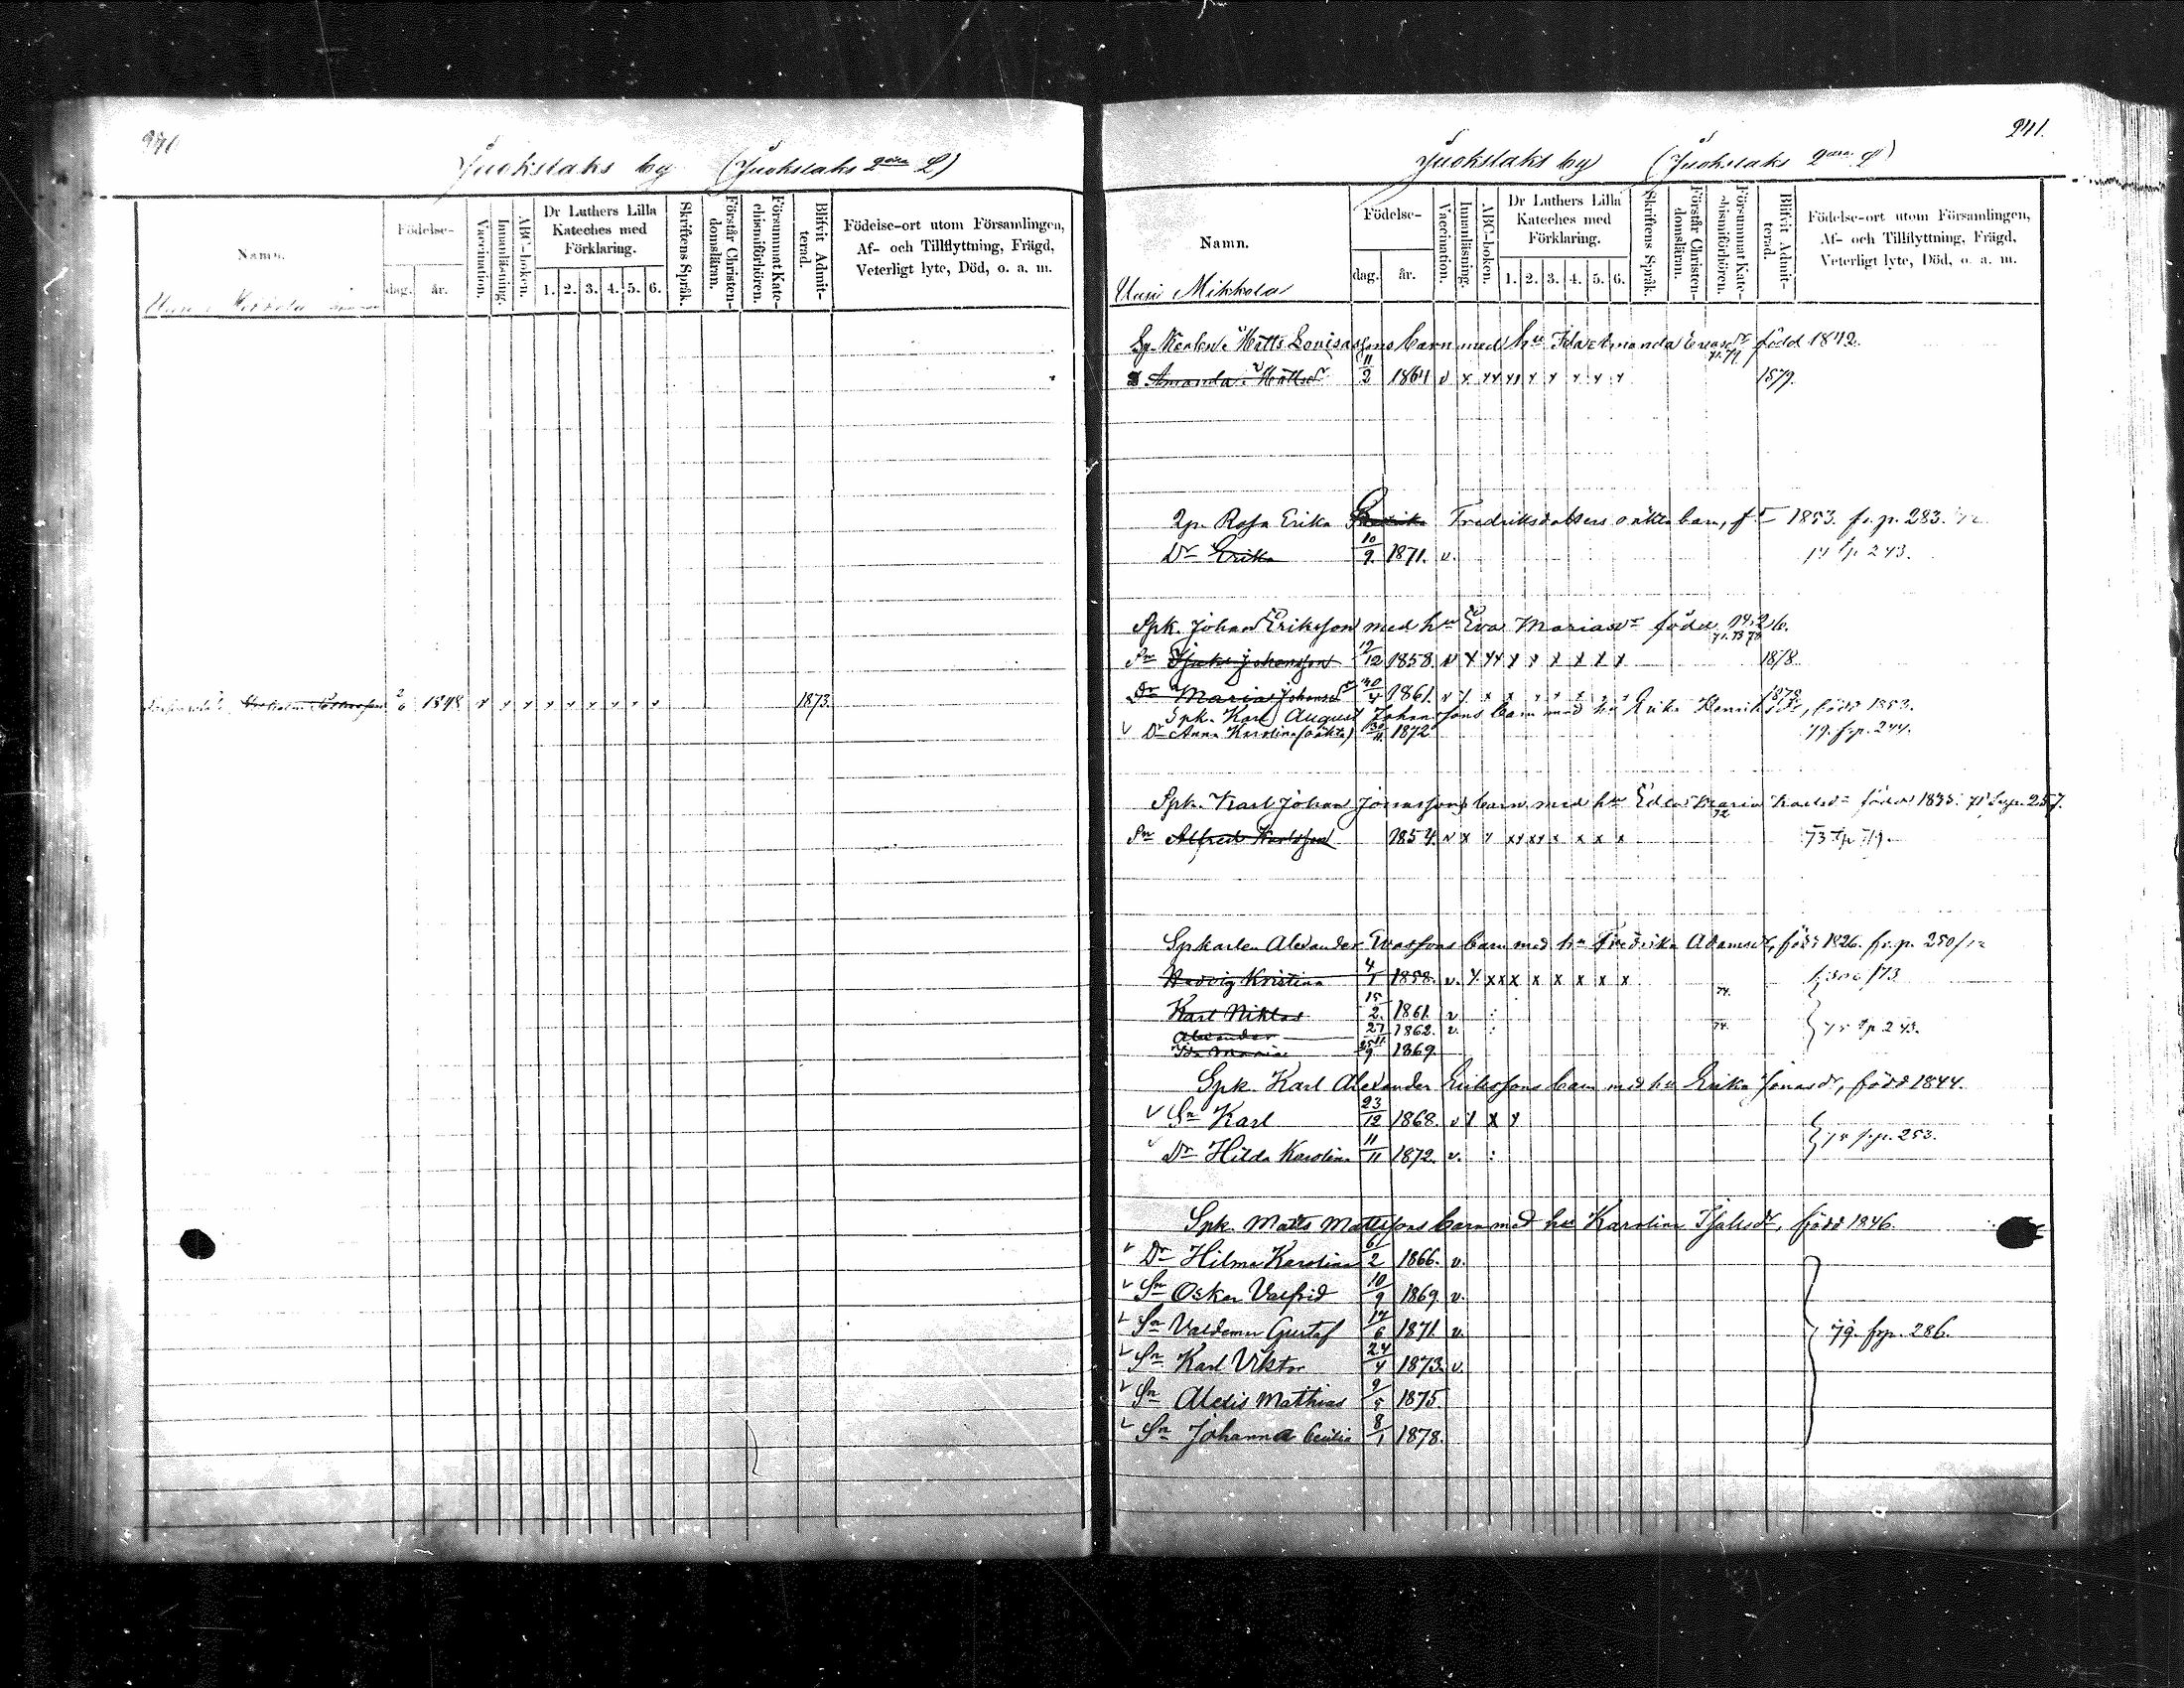 240
Juokslaks by (Juokslaks 2dra L)
Namn.
Födelse-
dag.
år.
Vaccination.
Innanläsning.
ABC-boken.
Dr Luthers Lilla
Kateches med
Förklaring.
1. 2. 3. 4. 5. 6.
Skriftens Språk.
Förstår Christen-
domsläran.
Försummat Kate-
chismiförhören.
Blifvit Admit-
terad.
Födelse-ort utom Församlingen,
Af- och Tillflyttning, Frägd,
Veterligt lyte, Död, o. a. m.
2/6 1848 x x x x x x x x x 1873
241.
Juokslaks by (Juokslaks 2dra L)
Namn.
Uusi Mikkola
Födelse-
dag.
år.
Vaccination.
Innanläsning.
ABC-boken.
Dr Luthers Lilla
Kateches med
Förklaring.
1. 2. 3. 4. 5. 6.
Skriftens Språk.
Förstår Christen-
domsläran.
Försummat Kate-
chismiförhören.
Blifvit Admit-
terad.
Födelse-ort utom Församlingen,
Af- och Tillflyttning, Frägd,
Veterligt lyte, Död, o. a. m.
Matts Lovisassons barn med hu Ida Amanda född 1842.
Amanda Mattsdr 11/2 1864 v x xx xx x x x x x 1879.
Rosa Erika Fredriksdotters oäkta barn, f. 1853. fr. p. 283.
Dr Erika 10/9 1871. v. t. p. 243.
Spk. Johan Eriksson med hu Eva Mariasdr född 1826.
Sn Johansson 12/12 1858. v x xx x x x x x x 1878
Dr Maria Johansdr 1861. v x x x x x x x x 1878
Spk. Karl August Johanssons barn med hu Erika Henriksdr, född 1853.
v Dr Anna Karolina (oäkta) 30/11 1872 79. fr. p. 244.
Spk. Karl Johan Jonassons barn med hu Edla Maria Karlsdr född 1835. fr. p. 257.
72
Sn Alfred Karlsson 1854. v x x xx xx x x x x
Spkarlen Alexander Evassons barn med hu Fredrika Adamsdr, född 1826. fr. p. 250/
Hedvig Kristina 4/1 1858. v. x xxx x x x x x
Karl Niklas 15/2 1861. v : 74.
Alexander 27 1862. v. : 74. 75 t. p. 243.
Ida Maria 1869.
Spk. Karl Alexander Erikssons barn med hu Erika Jonasdr, född 1844.
v Sn Karl 23/12 1868. v x x x
v Dr Hilda Karolina 11/11 1872. v. : 75 fr. p. 253.
Spk. Matts Mattssons barn med hu Karolina Isaksdr, född 1846.
v Dr Hilma Karolina 6/2 1866. v.
v Sn Oskar Valfrid 10/9 1869 v.
v Sn Valdemar Gustaf 17/6 1871 v. 79. fr. p. 286.
v Sn Karl Viktor 24/4 1873. v.
v Sn Alexis Mathias 9/5 1875
v Sn Johanna Cecilia 8/1 1878.